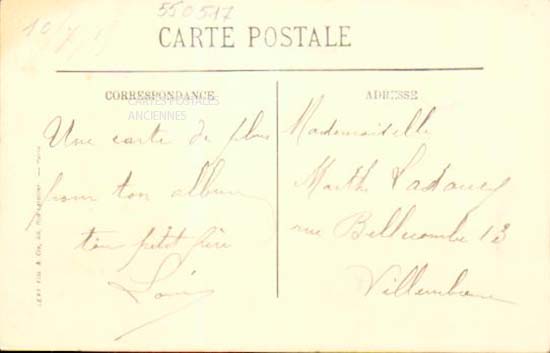 550517
CARTE POSTALE
CORRESPONDANCE
CARTES POSTALES
ANCIENNES
ADRESSE
Une carte de plus
pour ton album
ton petit frère
Louis
Mademoiselle
Marthe
rue Bellecombe 13
Villeurbanne